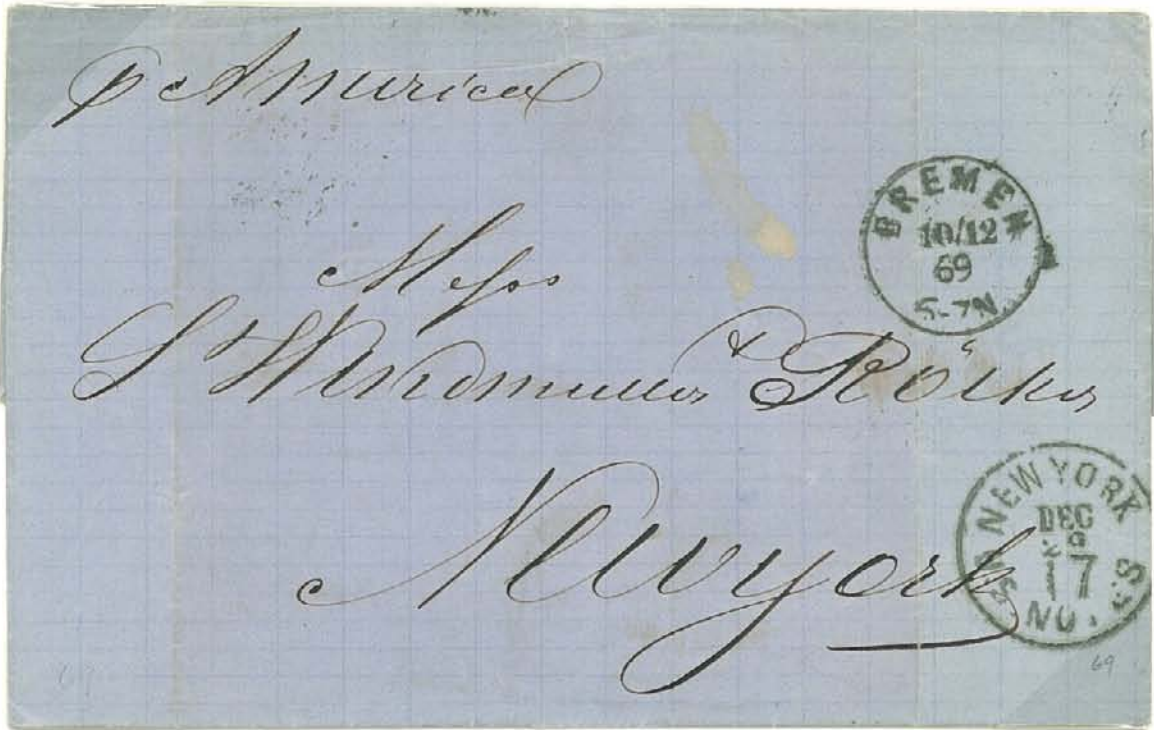 p America
BREMEN
10/12
69
5-7N.
Mess
L Windmuller & Rölker
Newyork
NEW YORK
DEC
29
17
NO.
69